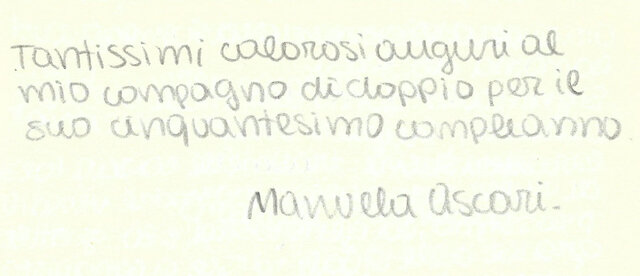 Tantissimi calorosi auguri al
mio compagno di doppio per il
suo cinquantesimo compleanno
Manuela Ascari-